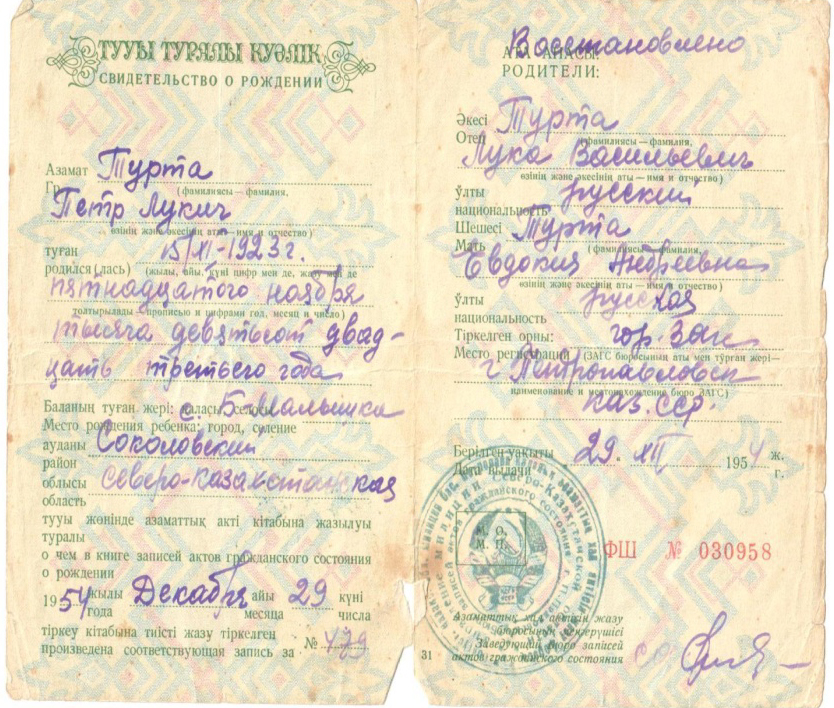 ТУУЫ ТУРАЛЫ КУӘЛІК
СВИДЕТЕЛЬСТВО О РОЖДЕНИИ
Азамат Турта
Гр.
(фамилиясы — фамилия,
Петр Лукич
өзінің және әкесінің аты — имя и отчество)
туған 15/XI-1923 г.
родился (лась) (жылы, айы, күні цифр мен де, де
пятнадцатого ноября
толтырылады — прописью и цифрами год, месяц и число)
тысяча девятьсот двад-
цать третьего года
Баланың туған жері: қаласы, селосы с. Б Малышка
Место рождения ребенка: город, селение
ауданы Соколовский
район
облысы Северо-Казахстанская
область
тууы жөнінде азаматтық акті кітабына жазылуы
туралы
о чем в книге записей актов гражданского состояния
о рождении
1954 жылы Декабря айы 29 күні
года месяца числа
тіркеу кітабына тиісті жазу тіркелген
произведена соответствующая запись за № 479
Восстановлено
АТА-АНАСЫ:
РОДИТЕЛИ:
Әкесі Турта
Отец (фамилиясы — фамилия,
Лука Васильевич
өзінің және әкесінің аты — имя и отчество)
ұлты русский
национальность
Шешесі Турта
Мать (фамилиясы — фамилия,
Евдокия Андреевна
өзінің және әкесінің аты — имя и отчество)
ұлты русская
национальность
Тіркелген орны: гор. Загс
Место регистрации (ЗАГС бюросының аты мен тұрған жері —
г Петропавловск
наименование и местонахождение бюро ЗАГС)
Каз. ССР.
Берілген уақыты 29. XII 1954 ж.
Дата выдачи г.
М. О.
М. П.
ФШ № 030958
Азаматтық хал актісін жазу
бюросының меңгерушісі
Заведующий бюро записей
актов гражданского состояния
31